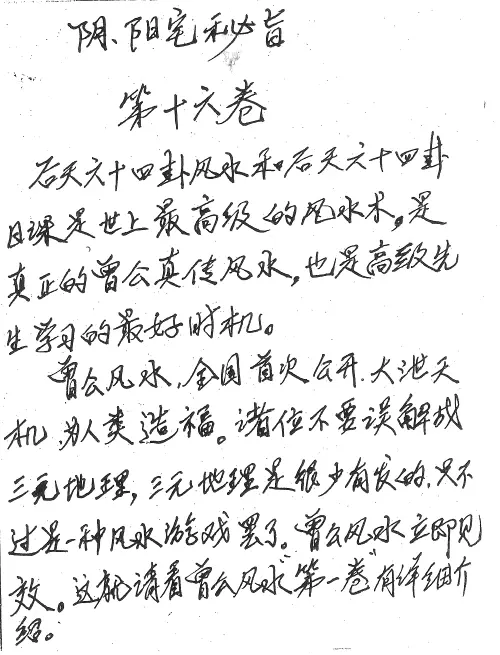 阴、阳宅秘旨
第十六卷
后天六十四卦风水和后天六十四卦
日课是世上最高级的风水术。是
真正的曾公真传风水,也是高致先
生学习的最好时机。
曾公风水,全国首次公开.大泄天
机,为人类造福。诸位不要误解成
三元地理,三元地理是很少有发的.只不
过是一种风水游戏罢了。曾公风水立即见
效。这就请看"曾公风水"第一卷"有详细介
绍。